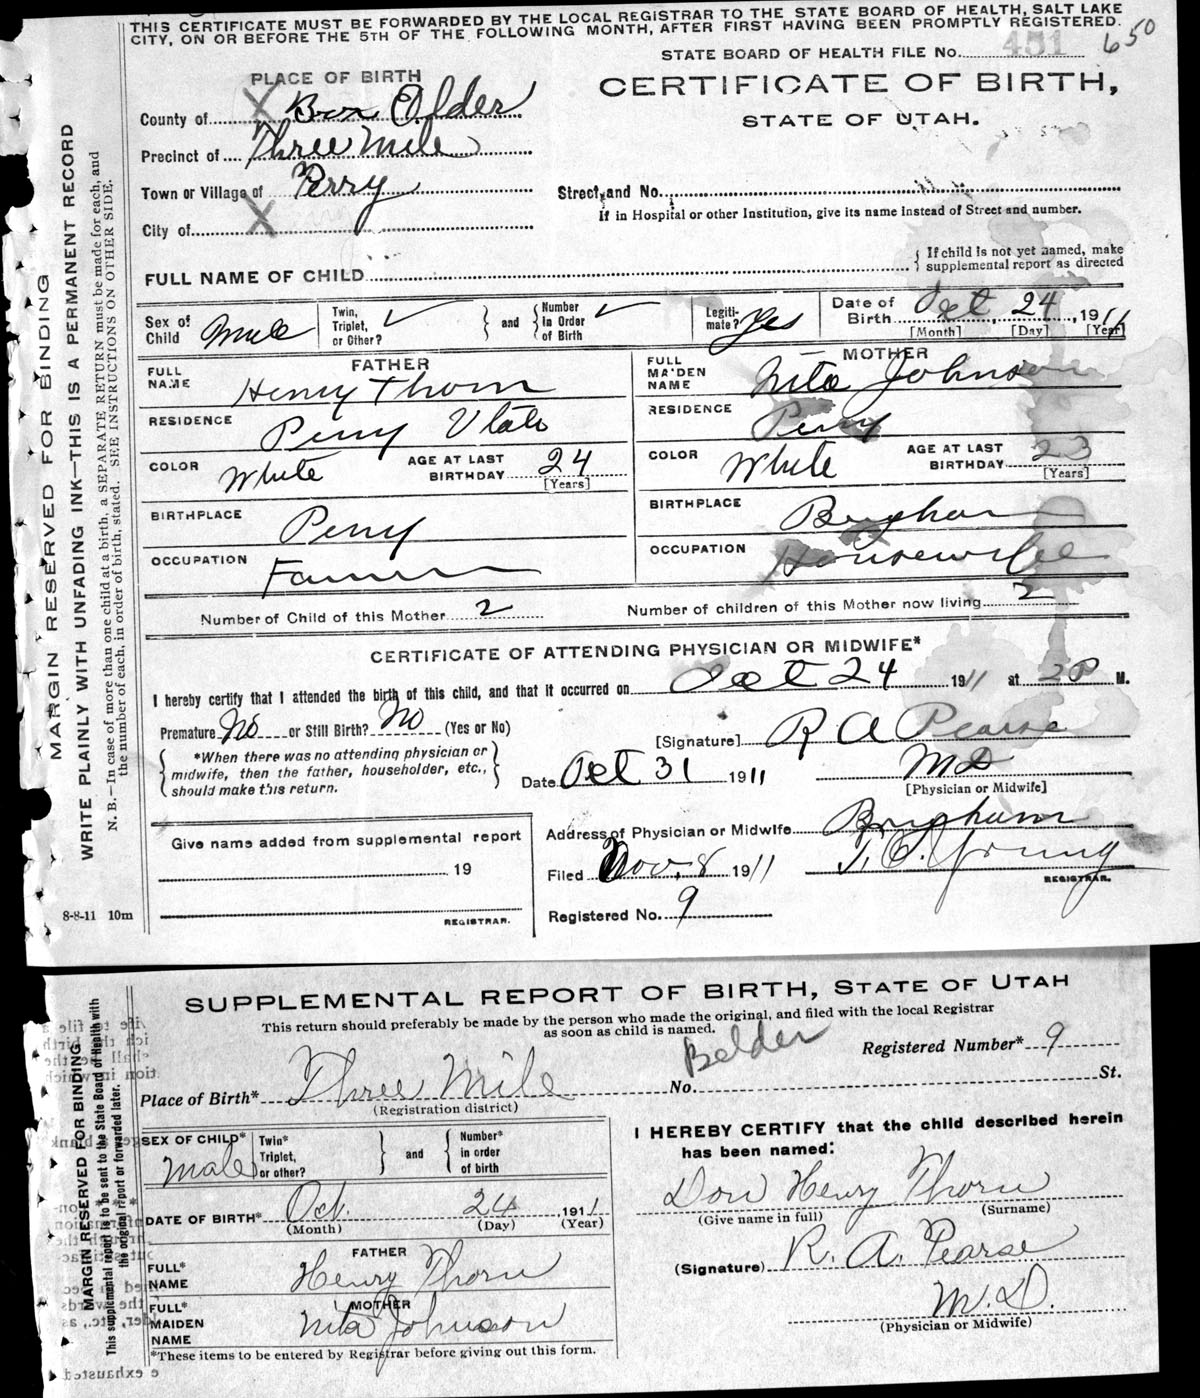 THIS CERTIFICATE MUST BE FORWARDED BY THE LOCAL REGISTRAR TO THE STATE BOARD OF HEALTH, SALT LAKE
CITY, ON OR BEFORE THE 5TH OF THE FOLLOWING MONTH, AFTER FIRST HAVING BEEN PROMPTLY REGISTERED.
STATE BOARD OF HEALTH FILE No. 451 650
PLACE OF BIRTH
CERTIFICATE OF BIRTH,
STATE OF UTAH.
County of Box Elder
Precinct of Three Mile
Town or Village of Perry
Street and No.
If in Hospital or other Institution, give its name instead of Street and number.
City of
FULL NAME OF CHILD
{ If child is not yet named, make supplemental report as directed
Sex of Child Male
Twin, Triplet, or Other?
and
Number in Order of Birth
Legitimate? Yes
Date of Birth Oct 24, 1911
[Month] [Day] [Year]
FATHER
FULL NAME Henry Thorn
RESIDENCE Perry Utah
COLOR White AGE AT LAST BIRTHDAY 24 [Years]
BIRTHPLACE Perry
OCCUPATION Farmer
MOTHER
FULL MAIDEN NAME Nita Johnson
RESIDENCE Perry
COLOR White AGE AT LAST BIRTHDAY 23 [Years]
BIRTHPLACE Brigham
OCCUPATION Housewife
Number of Child of this Mother 2 Number of children of this Mother now living 2
CERTIFICATE OF ATTENDING PHYSICIAN OR MIDWIFE*
I hereby certify that I attended the birth of this child, and that it occurred on Oct 24 1911 at 2 P M.
Premature No or Still Birth? No (Yes or No)
{ *When there was no attending physician or
midwife, then the father, householder, etc.,
should make this return. }
[Signature] R A Pearse
Date Oct 31 1911 MD
[Physician or Midwife]
Give name added from supplemental report
19
REGISTRAR.
Address of Physician or Midwife Brigham
Filed Nov. 8 1911 Young
REGISTRAR.
Registered No. 9
8-8-11 10m
MARGIN RESERVED FOR BINDING
WRITE PLAINLY WITH UNFADING INK—THIS IS A PERMANENT RECORD
N. B.—In case of more than one child at a birth, a SEPARATE RETURN must be made for each, and
the number of each, in order of birth, stated. SEE INSTRUCTIONS ON OTHER SIDE.
SUPPLEMENTAL REPORT OF BIRTH, STATE OF UTAH
This return should preferably be made by the person who made the original, and filed with the local Registrar
as soon as child is named.
Registered Number* 9
Place of Birth* Three Mile No. St.
(Registration district)
SEX OF CHILD* Male
Twin* Triplet, or other?
and
Number* in order of birth
DATE OF BIRTH* Oct. 24 1911
(Month) (Day) (Year)
FATHER
FULL* NAME Henry Thorn
MOTHER
FULL* MAIDEN NAME Nita Johnson
*These items to be entered by Registrar before giving out this form.
I HEREBY CERTIFY that the child described herein
has been named:
Don Henry Thorn
(Give name in full) (Surname)
(Signature) R. A. Pearse
M.D.
(Physician or Midwife)
MARGIN RESERVED FOR BINDING
This supplemental report is to be sent to the State Board of Health with
the original report or forwarded later.